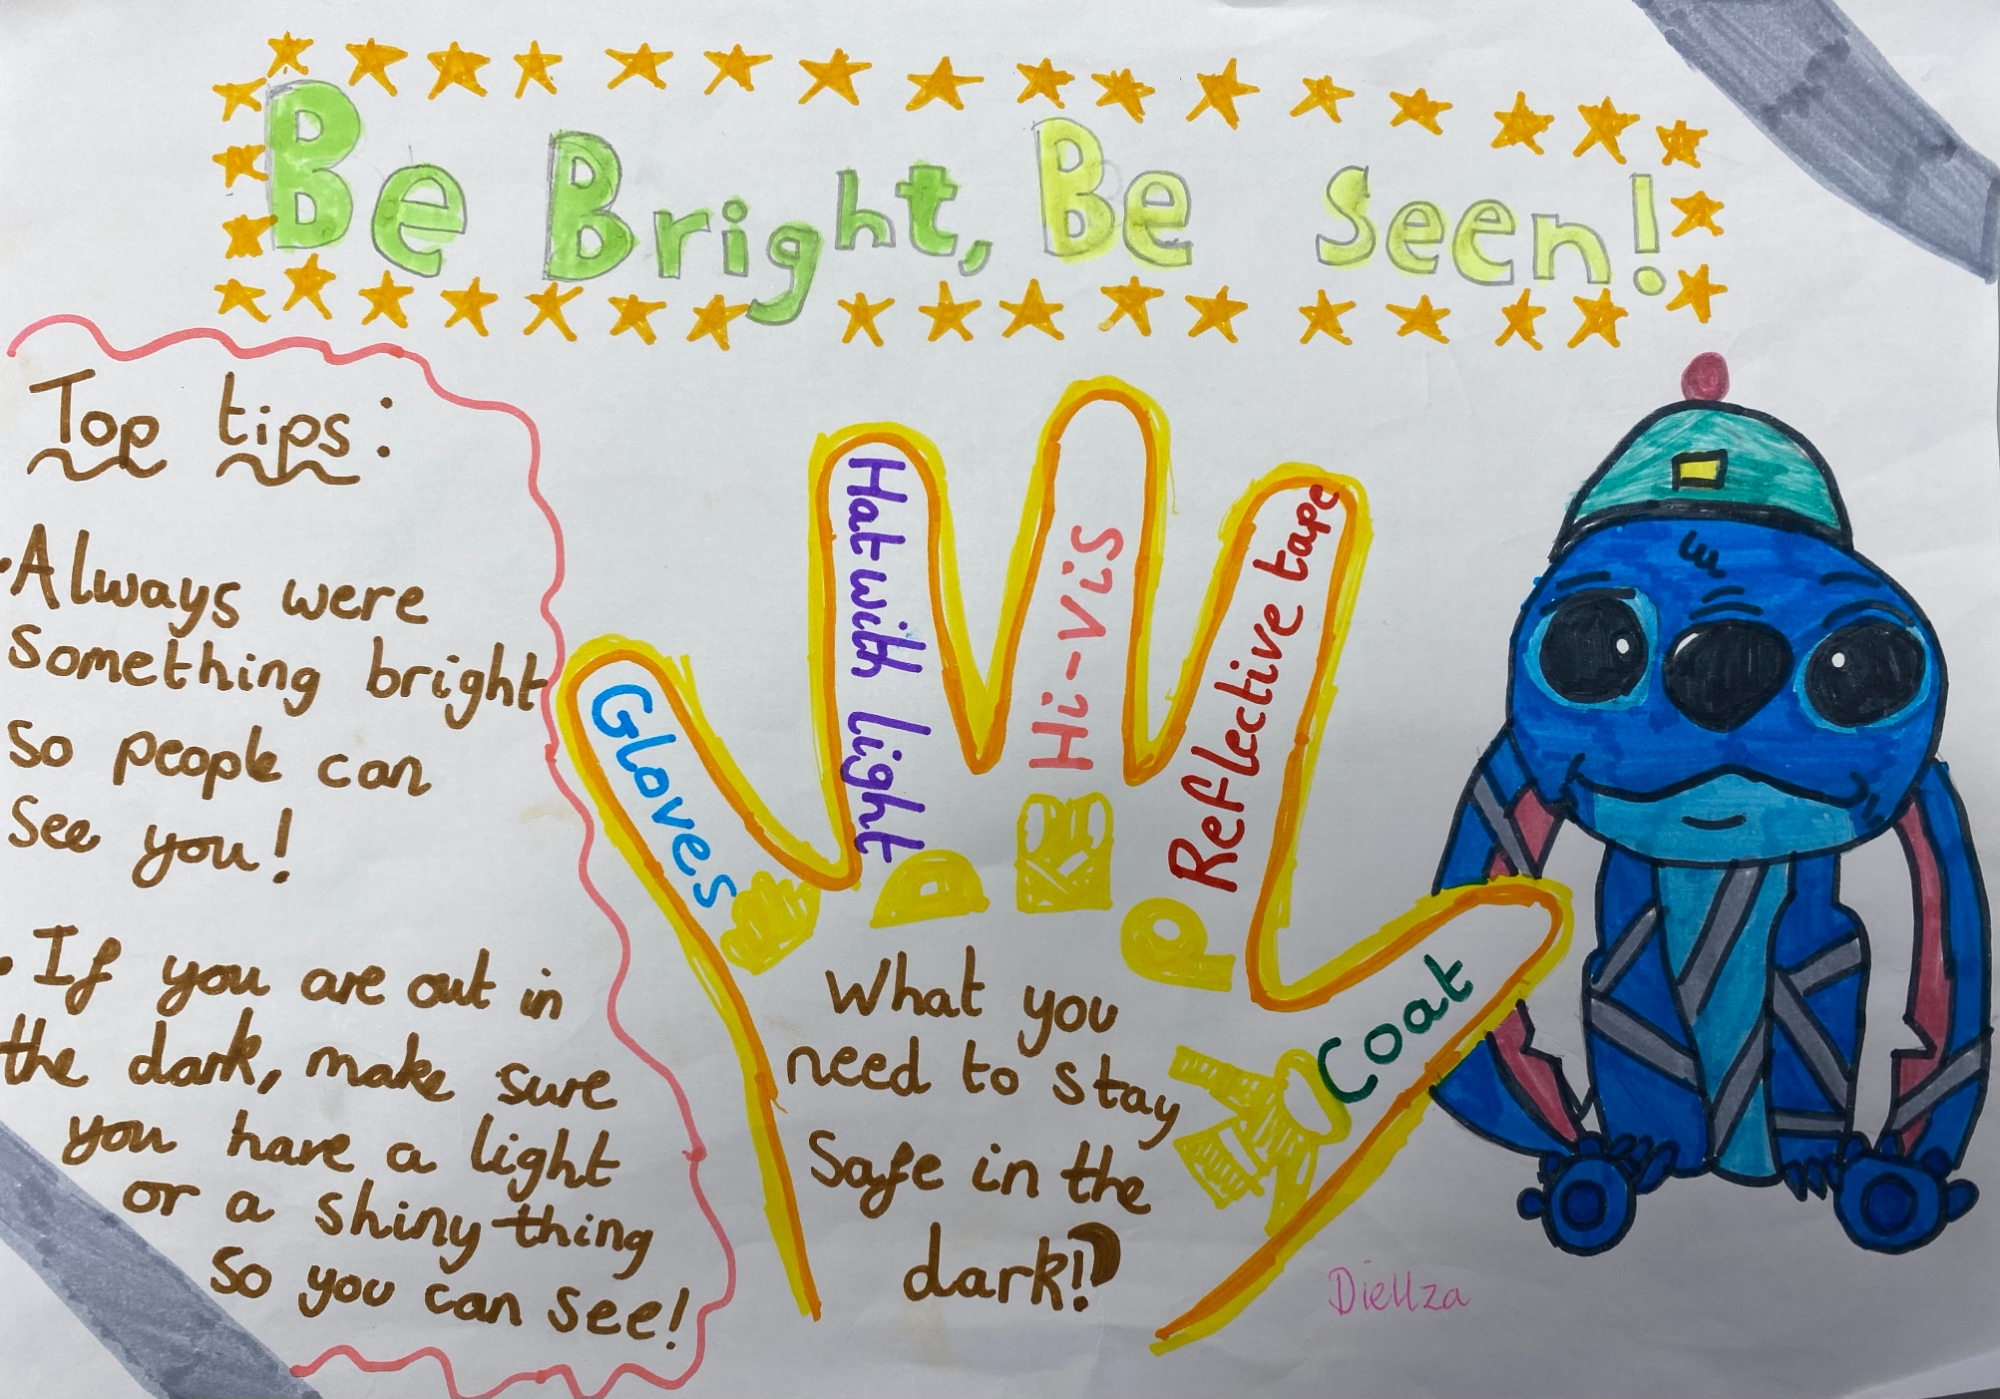 Be Bright, Be Seen!
Top tips:
• Always were
something bright
so people can
see you!
• If you are out in
the dark, make sure
you have a light
or a shiny thing
so you can see!
Gloves
Hat with light
Hi-vis
Reflective tape
Coat
What you
need to stay
safe in the
dark!?
Diellza